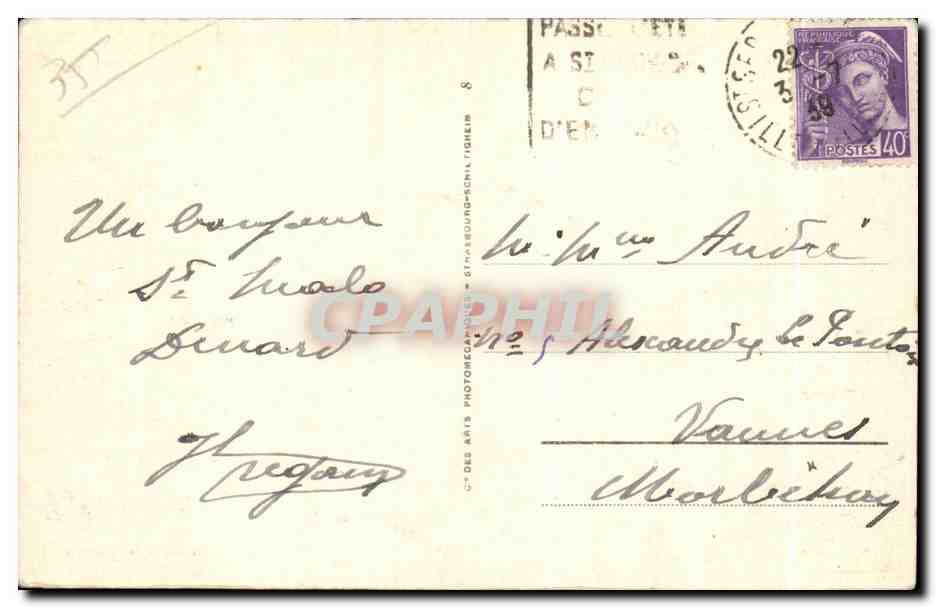 35
PASSE L'ETE
A ST
D'EN
22
3 -7
39
RÉPUBLIQUE
FRANÇAISE
POSTES 40c
8
Cie DES ARTS PHOTOMECANIQUES - STRASBOURG-SCHILTIGHEIM
Un bonjour
St malo
Dinard
M. Mme André
no 5 Alexandre Le Pontois
Vannes
Morbihan
CPAPHIL